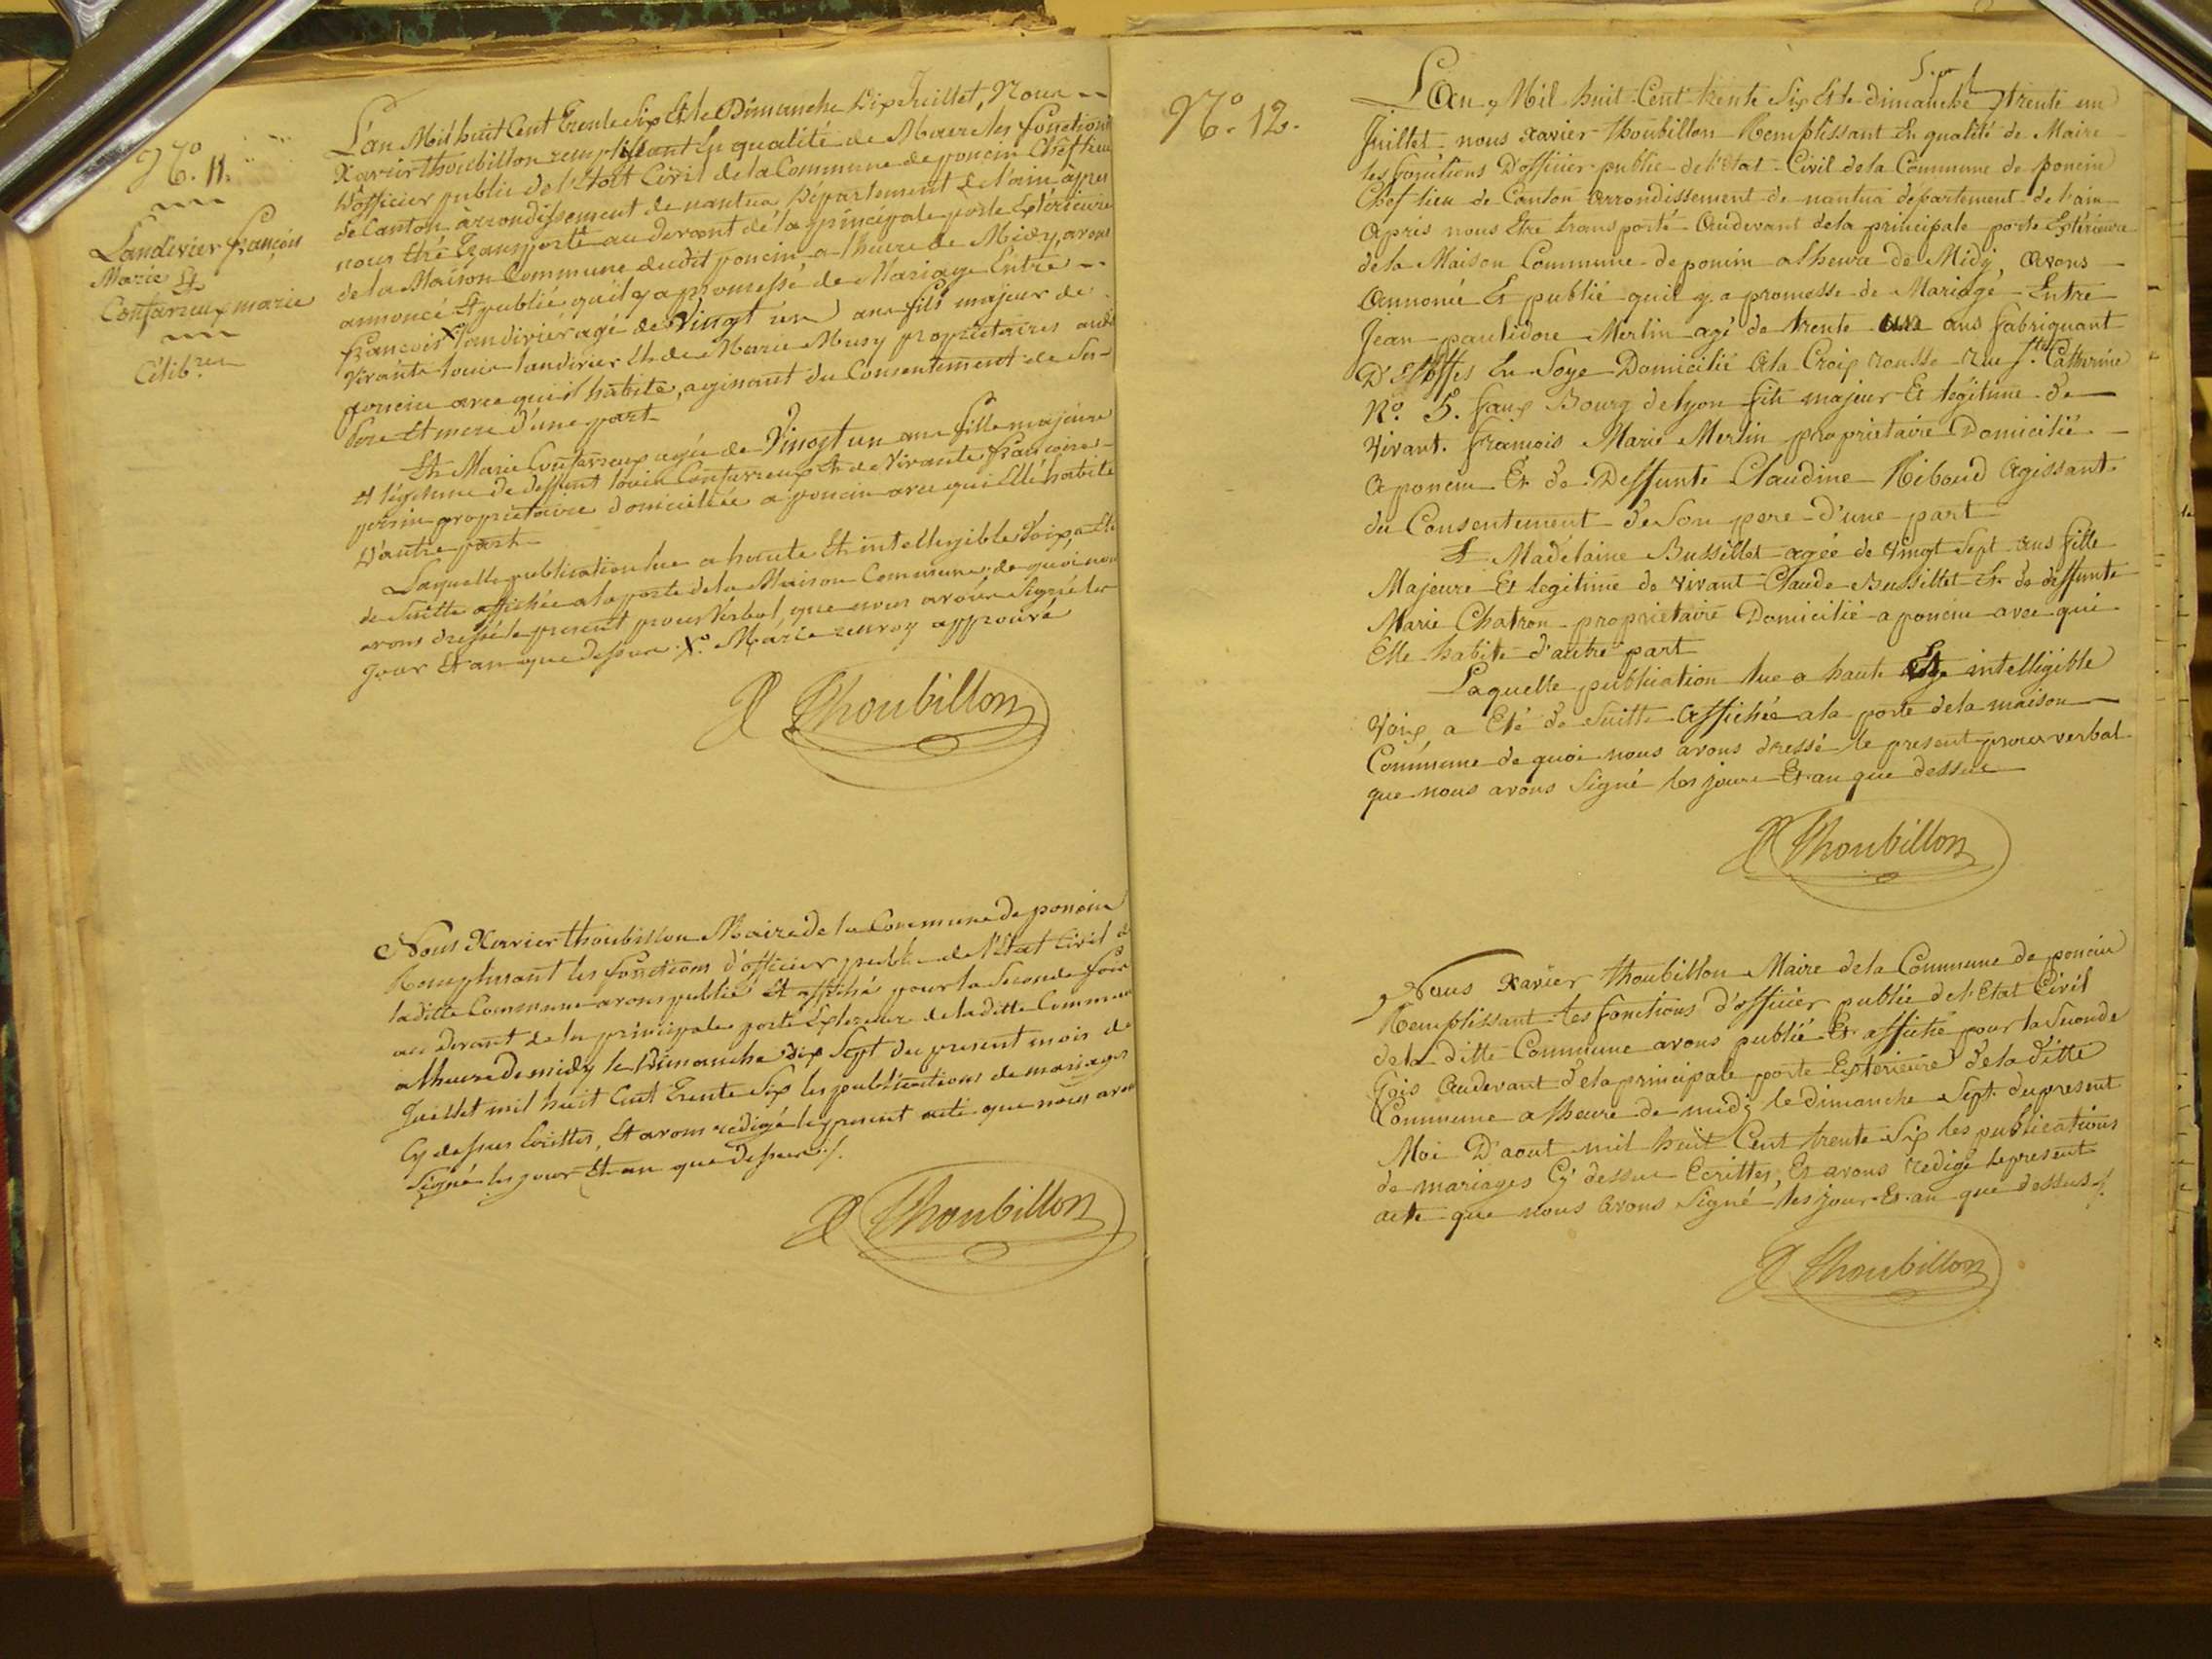 N.o 11.
Landivier françois
Marie Et
Confarreux marie
Célib.res
L'an Mil huit Cent Trente Six Et le Dimanche Dix Juillet, Nous
Xavier thoubillon remplissant En qualité de Maire les fonctions
D'officier public de l'Etat Civil de la Commune de poncin Chef lieu
de Canton arrondissement de nantua Département de l'ain après
nous être Transporté au devant de la principale porte Extérieure
de la Maison Commune dudit poncin a l'heure de Midy, avons
annoncé Et publié qu'il y a promesse de Mariage Entre
françois X landivier agé de Vingt un ans fils majeur de
Vivants louis landivier Et de Marie Musy propriétaires audit
poncin avec qui il habite, agissant du Consentement de Ses
Pere Et mere D'une part
Et Marie Confarreux agée de Vingt un ans fille majeure
et légitime de deffunt louis Confarreux Et de Vivante françoise
persin propriétaire domiciliée a poncin avec qui Elle habite
D'autre part
Laquelle publication lue a haute Et intelligible Voix, a Eté
de Suitte affichée a la porte de la Maison Commune de quoi nous
avons dressé le present procès Verbal, que nous avons Signé les
jour Et an que dessus X. Marie renvoy approuvé
X Thoubillon
Nous Xavier thoubillon Maire de la Commune de poncin
Remplissant les fonctions d'officier public de l'état Civil de
laditte Commune avons publié Et affiché pour la Seconde fois
au devant de la principale porte Exterieure de laditte Commune
a l'heure de midy le Dimanche dix Sept du present mois de
Juillet mil huit Cent Trente Six les publications de mariages
Cy dessus Ecrittes, Et avons redigé le present acte que nous avons
Signé les jour Et an que dessus ./.
X Thoubillon
N.o 12.
L'An Mil huit Cent trente Six Et le dimanche trente un
Juillet nous xavier thoubillon Remplissant En qualité de Maire
les fonctions D'officier public de l'Etat Civil de la Commune de poncin
Chef lieu de Canton Arrondissement de nantua département de l'ain
Après nous Etre transporté Audevant de la principale porte Extérieure
de la Maison Commune de poncin a l'heure de Midy, Avons
Annoncé Et publié qu'il y a promesse de Mariage Entre
Jean paul idore Merlin agé de trente un ans fabriquant
D'Etoffes En Soye Domicilié A la Croix rousse rue S.te Catherine
N.o 5. faux Bourg de lyon fils majeur Et légitime de
Vivant françois Marie Merlin proprietaire Domicilié
A poncin Et de Deffunte Claudine Ribaud Agissant
du Consentement de Son pere D'une part
Et Madelaine Bussillet agée de vingt Sept ans fille
Majeure Et legitime de vivant Claude Bussillet Et de deffunte
Marie Chatron proprietaire Domicilié a poncin avec qui
Elle habite d'autre part
Laquelle publication lue a haute Et intelligible
Voix, a Eté de Suitte Affichée a la porte de la maison
Commune de quoi nous avons dressé le present procès verbal
que nous avons Signé les jour Et an que dessus
X Thoubillon
Nous xavier thoubillon Maire de la Commune de poncin
Remplissant les fonctions d'officier public de l'Etat Civil
de la ditte Commune avons publié Et affiché pour la Seconde
fois Audevant de la principale porte Extérieure de la ditte
Commune a l'heure de midy le dimanche Sept du present
Moi D'aout mil huit Cent trente Six les publications
de mariages Cy dessus Ecrittes, Et avons redigé le present
acte que nous avons Signé les jour Et an que dessus ./.
X Thoubillon